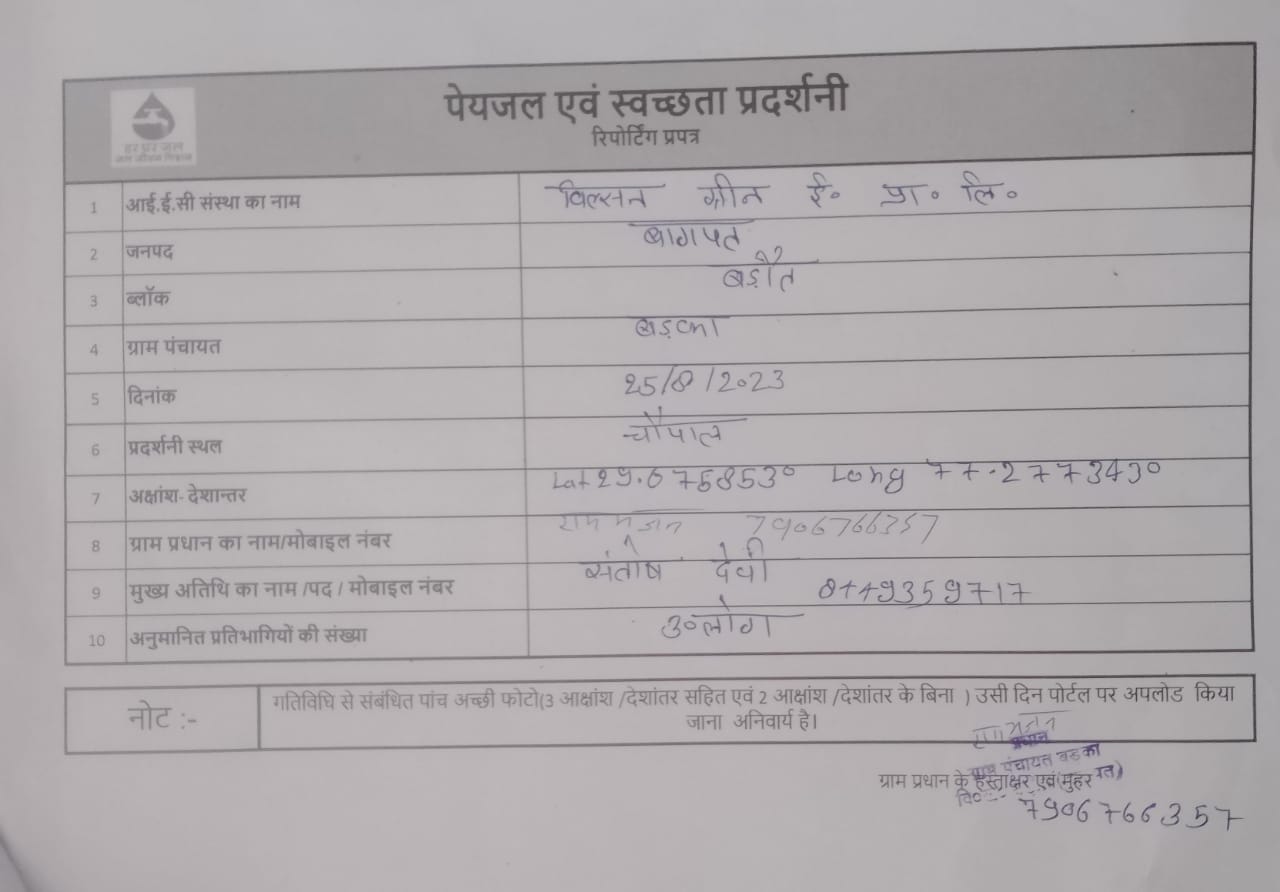 हर घर जल
जल जीवन मिशन
पेयजल एवं स्वच्छता प्रदर्शनी
रिपोर्टिंग प्रपत्र
1 आई.ई.सी संस्था का नाम विल्सन ग्रीन ई० प्रा० लि०
2 जनपद बागपत
3 ब्लॉक बड़ौत
4 ग्राम पंचायत बड़का
5 दिनांक 25/8/2023
6 प्रदर्शनी स्थल चौपाल
7 अक्षांश- देशान्तर Lat 29.6758530 Long 77.2773430
8 ग्राम प्रधान का नाम/मोबाइल नंबर 7906766357
9 मुख्य अतिथि का नाम /पद / मोबाइल नंबर संतोष देवी 8449359717
10 अनुमानित प्रतिभागियों की संख्या 30 लोग
नोट :- गतिविधि से संबंधित पांच अच्छी फोटो(3 आक्षांश /देशांतर सहित एवं 2 आक्षांश /देशांतर के बिना ) उसी दिन पोर्टल पर अपलोड किया
जाना अनिवार्य है।
प्रधान
ग्राम पंचायत बड़का
ग्राम प्रधान के हस्ताक्षर एवं(मुहर
7906766357